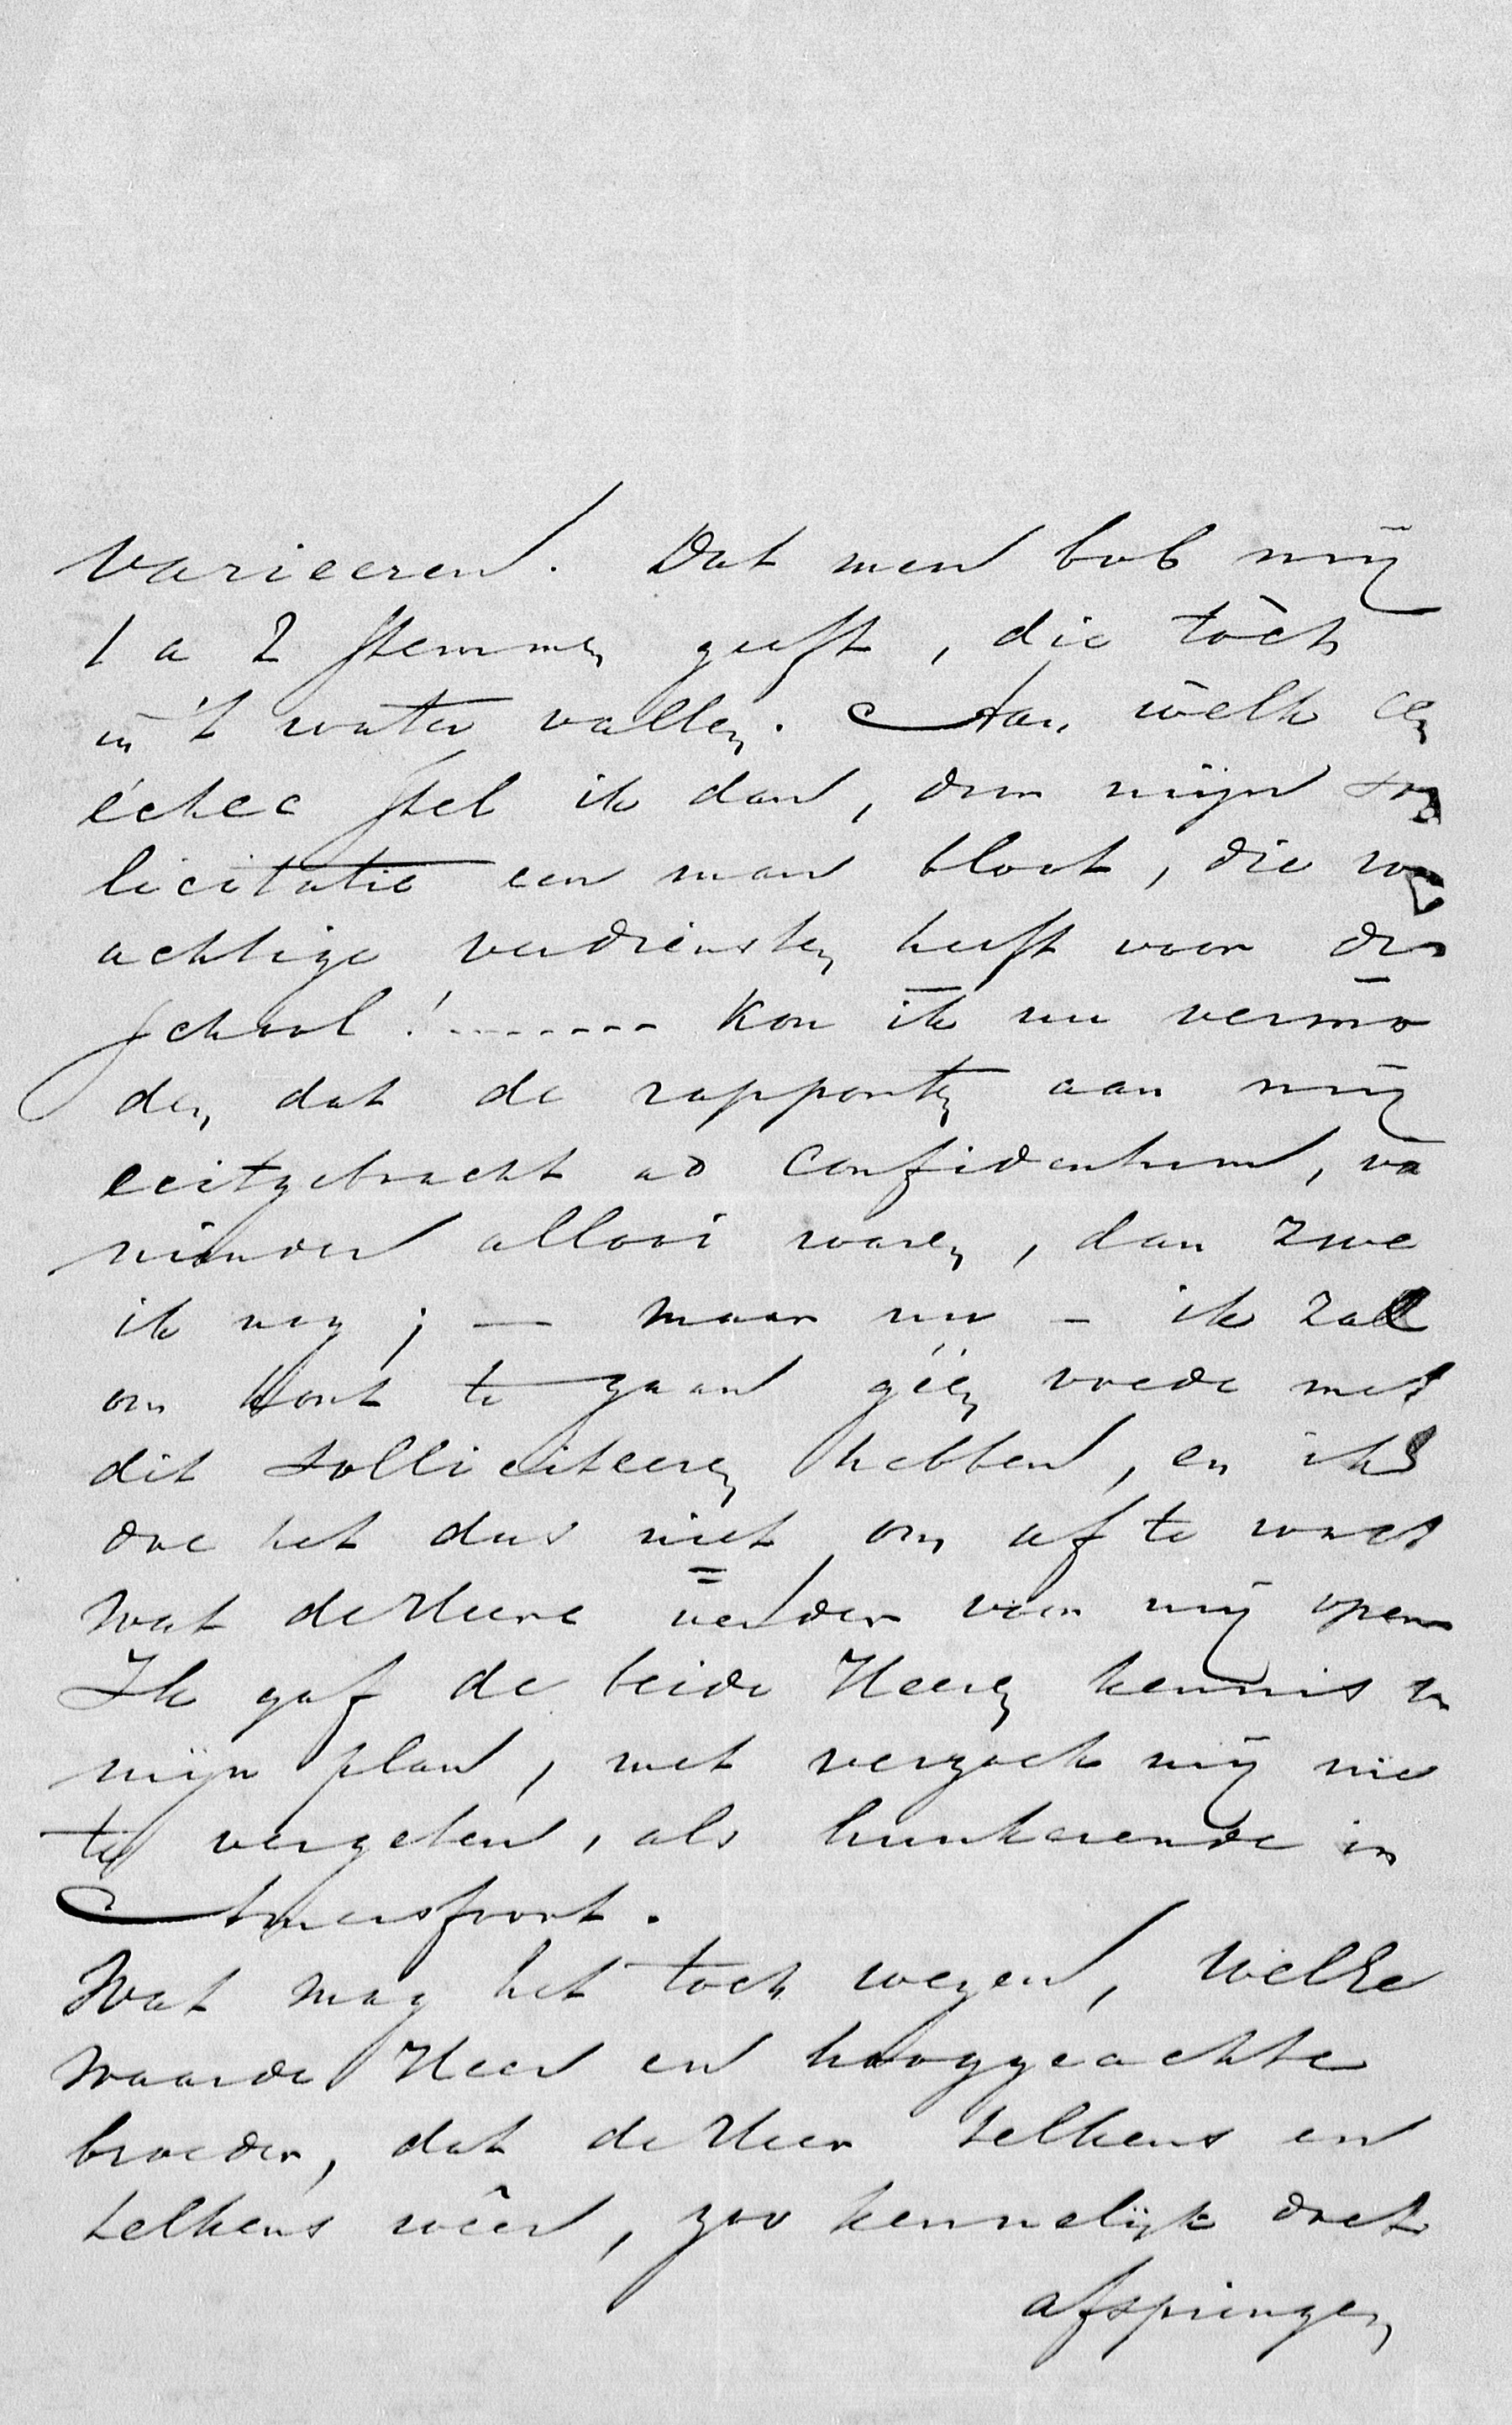 varieeren. Dat men bob mij
1 a 2 stemmen geeft, die tòch
in 't water vallen. Aan wèlk een
échec stel ik dan, door mijn sol
licitatie een man bloot, die
achtige verdiensten heeft voor de
school!------- Kon ik nu vermo
den, dat de rapporten aan mij
uitgebracht ad confidentium, va
minder allooi waren, dan zwe
ik nog; — maar nu – ik zal
om kort te gaan géén vrede met
dit solliciteeren hebben, en ik
doe het dus niet om af te wacht
wat de Heere verder voor mij open
Ik gaf de beide Heeren kennis v
mijn plan, met verzoek mij nie
te vergeten, als hunkerende in
Amersfoort.
Wat mag het toch wezen, WelEe
waarde Heer en hooggeachte
broeder, dat de Heer telkens en
telkens wêer, zoo kennelijk doet
afspringen